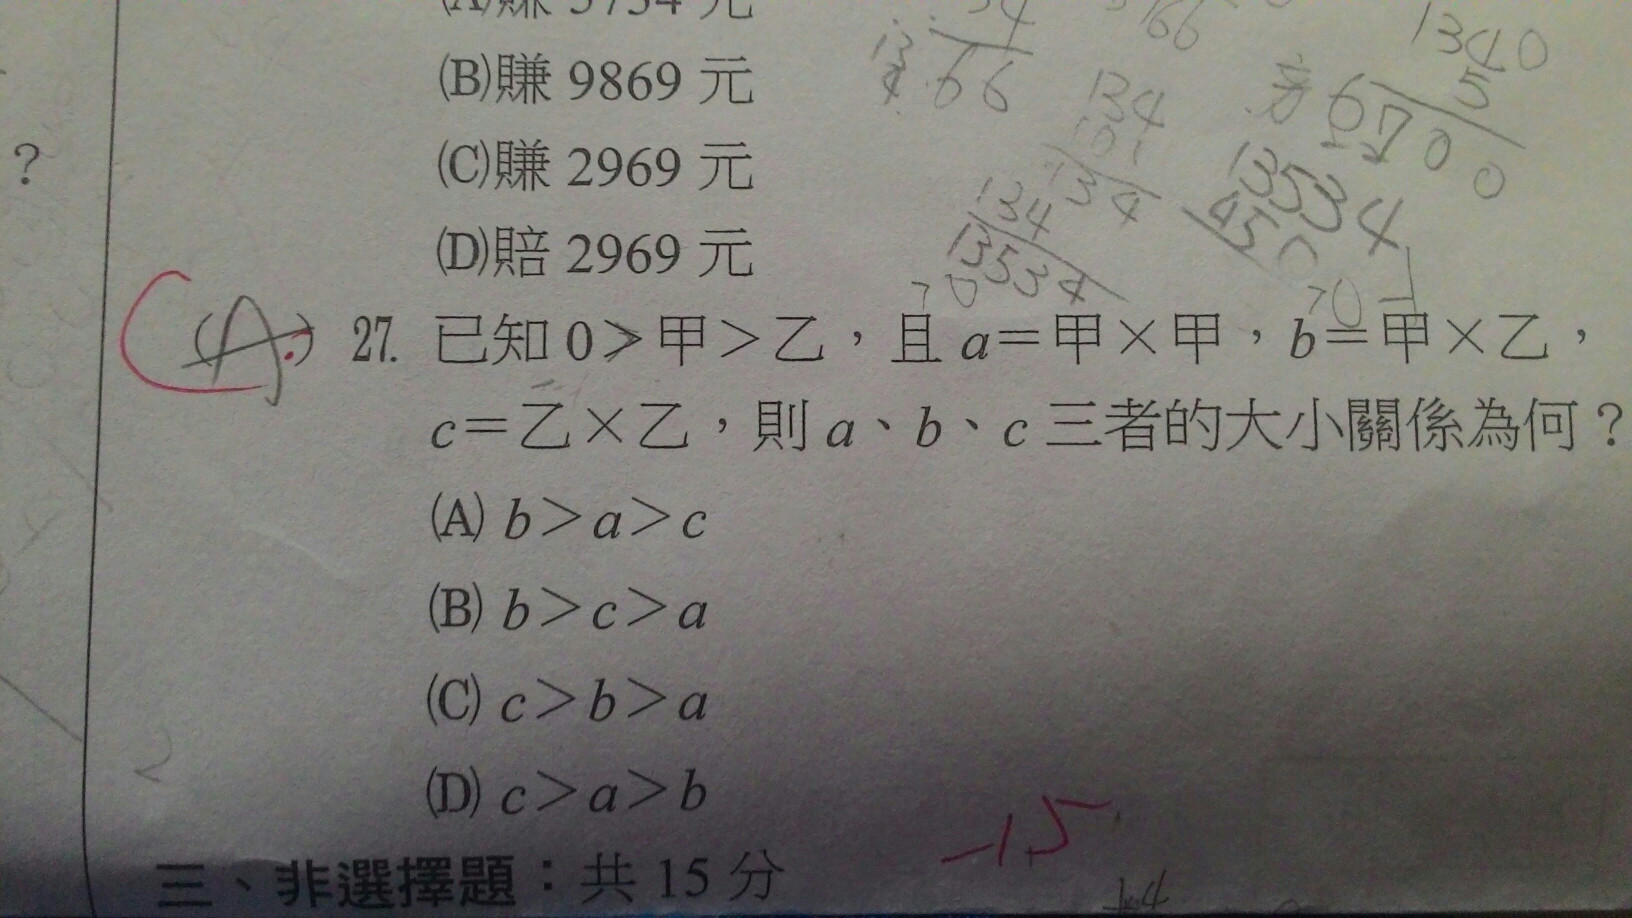 (A)賺 5734 元
(B)賺 9869 元
(C)賺 2969 元
(D)賠 2969 元
(A) 27. 已知 0>甲>乙，且 a=甲×甲，b=甲×乙，
c=乙×乙，則 a、b、c 三者的大小關係為何？
(A) b>a>c
(B) b>c>a
(C) c>b>a
(D) c>a>b
-15
三、非選擇題：共 15 分
?
66
166
1340
5
6700
134
101
134
134
13534
13534
450
>0
>0
C
2